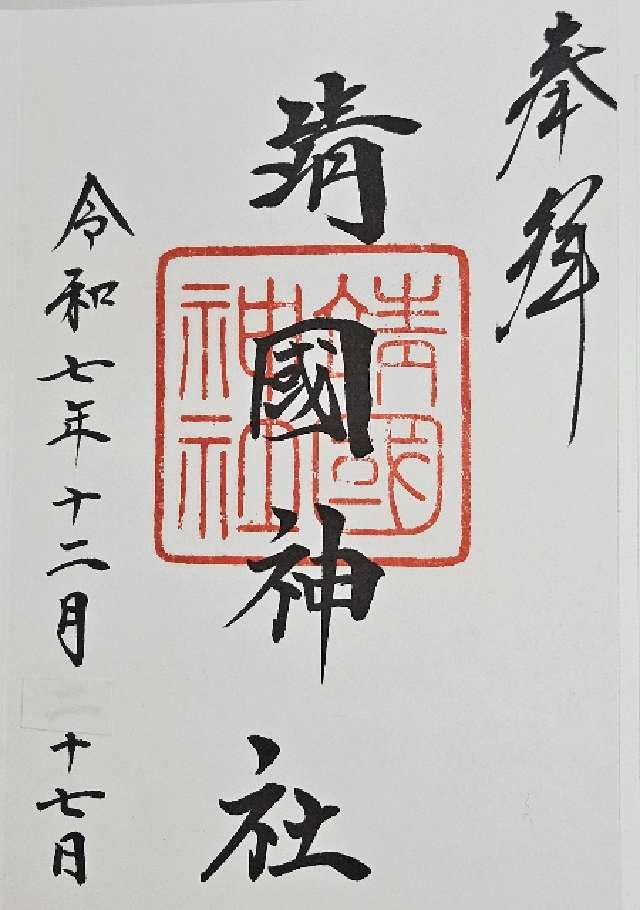 奉拝
靖國神社
靖國神社
令和七年十二月
十七日